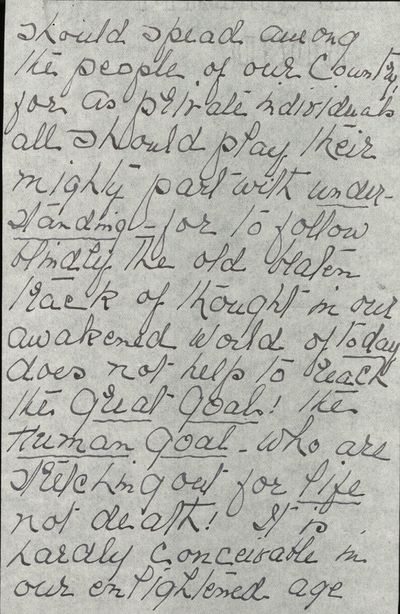 should spead among
the people of our Country,
for as private individuals
all should play their
mighty part with under-
standing - for to follow
blindly the old beaten
track of thought in our
awakened world of today
does not help to reach
the Great Goal! the
Human Goal - who are
stretching out for life
not death! It is
hardly conceivable in
our enlightened age